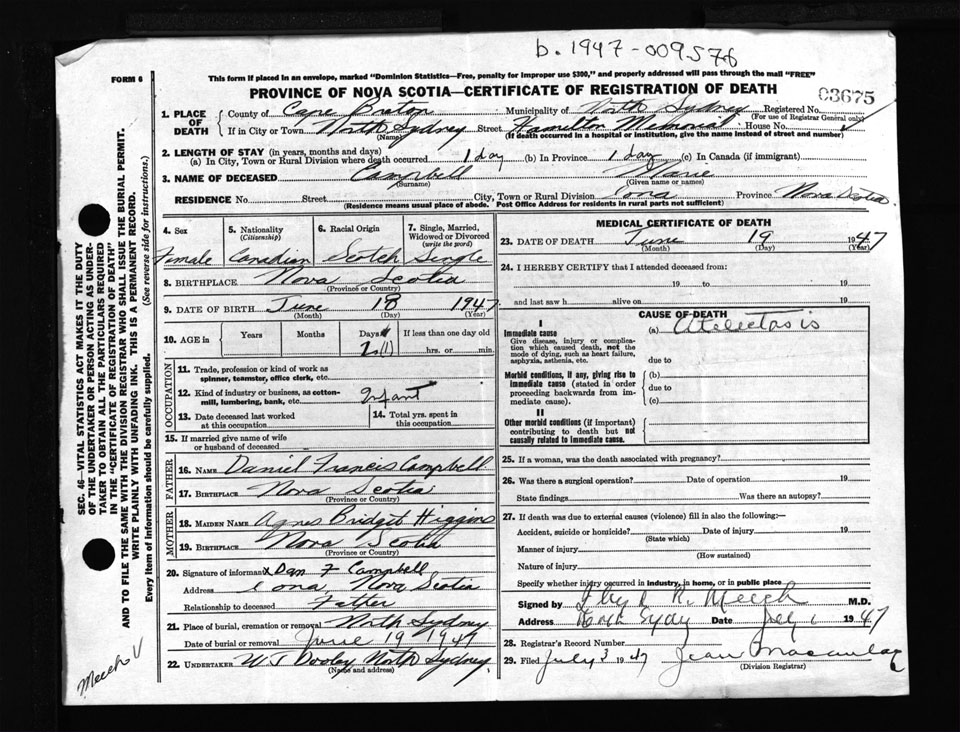 b. 1947-009576
FORM 6
This form if placed in an envelope, marked "Dominion Statistics—Free, penalty for improper use $300," and properly addressed will pass through the mail "FREE"
PROVINCE OF NOVA SCOTIA—CERTIFICATE OF REGISTRATION OF DEATH
03675
1. PLACE OF DEATH
County of Cape Breton Municipality of North Sydney Registered No.
(For use of Registrar General only)
If in City or Town North Sydney Street Hamilton Memorial House No.
(Name) (If death occurred in a hospital or institution, give the name instead of street and number)
2. LENGTH OF STAY (in years, months and days)
(a) In City, Town or Rural Division where death occurred 1 day (b) In Province 1 day (c) In Canada (if immigrant)
3. NAME OF DECEASED Campbell Marie
(Surname) (Given name or names)
RESIDENCE No. Street City, Town or Rural Division Iona Province Nova Scotia
(Residence means usual place of abode. Post Office Address for residents in rural parts not sufficient)
4. Sex 5. Nationality (Citizenship) 6. Racial Origin 7. Single, Married, Widowed or Divorced (write the word)
Female Canadian Scotch Single
8. BIRTHPLACE Nova Scotia
(Province or Country)
9. DATE OF BIRTH June 18 1947
(Month) (Day) (Year)
10. AGE in Years Months Days If less than one day old
(1) hrs. or min.
OCCUPATION
11. Trade, profession or kind of work as spinner, teamster, office clerk, etc.
12. Kind of industry or business, as cotton-mill, lumbering, bank, etc. Infant
13. Date deceased last worked at this occupation
14. Total yrs. spent in this occupation
15. If married give name of wife or husband of deceased
FATHER
16. NAME Daniel Francis Campbell
17. BIRTHPLACE Nova Scotia
(Province or Country)
MOTHER
18. MAIDEN NAME Agnes Bridget Higgins
19. BIRTHPLACE Nova Scotia
(Province or Country)
20. Signature of informant x Dan F Campbell
Address Iona Nova Scotia
Relationship to deceased Father
21. Place of burial, cremation or removal North Sydney
Date of burial or removal June 19 1947
22. UNDERTAKER W J Dooley North Sydney
(Name and address)
MEDICAL CERTIFICATE OF DEATH
23. DATE OF DEATH June 19 1947
(Month) (Day) (Year)
24. I HEREBY CERTIFY that I attended deceased from:
19 to 19
and last saw h alive on 19
CAUSE OF DEATH
I
Immediate cause (a) Atelectasis
Give disease, injury or complication which caused death, not the mode of dying, such as heart failure, asphyxia, asthenia, etc.
due to
Morbid conditions, if any, giving rise to immediate cause (stated in order proceeding backwards from immediate cause).
(b)
due to
(c)
II
Other morbid conditions (if important) contributing to death but not causally related to immediate cause.
25. If a woman, was the death associated with pregnancy?
26. Was there a surgical operation? Date of operation 19
State findings Was there an autopsy?
27. If death was due to external causes (violence) fill in also the following—
Accident, suicide or homicide? Date of injury 19
(State which)
Manner of injury
(How sustained)
Nature of injury
Specify whether injury occurred in industry, in home, or in public place
Signed by Meech M.D.
Address North Sydney Date July 1 1947
28. Registrar's Record Number
29. Filed July 3 1947 Jean Macaulay
(Division Registrar)
SEC. 46—VITAL STATISTICS ACT MAKES IT THE DUTY
OF THE UNDERTAKER OR PERSON ACTING AS UNDER-
TAKER TO OBTAIN ALL THE PARTICULARS REQUIRED
IN THE "CERTIFICATE OF REGISTRATION OF DEATH"
AND TO FILE THE SAME WITH THE DIVISION REGISTRAR WHO SHALL ISSUE THE BURIAL PERMIT.
WRITE PLAINLY WITH UNFADING INK. THIS IS A PERMANENT RECORD.
Every item of information should be carefully supplied. (See reverse side for instructions.)